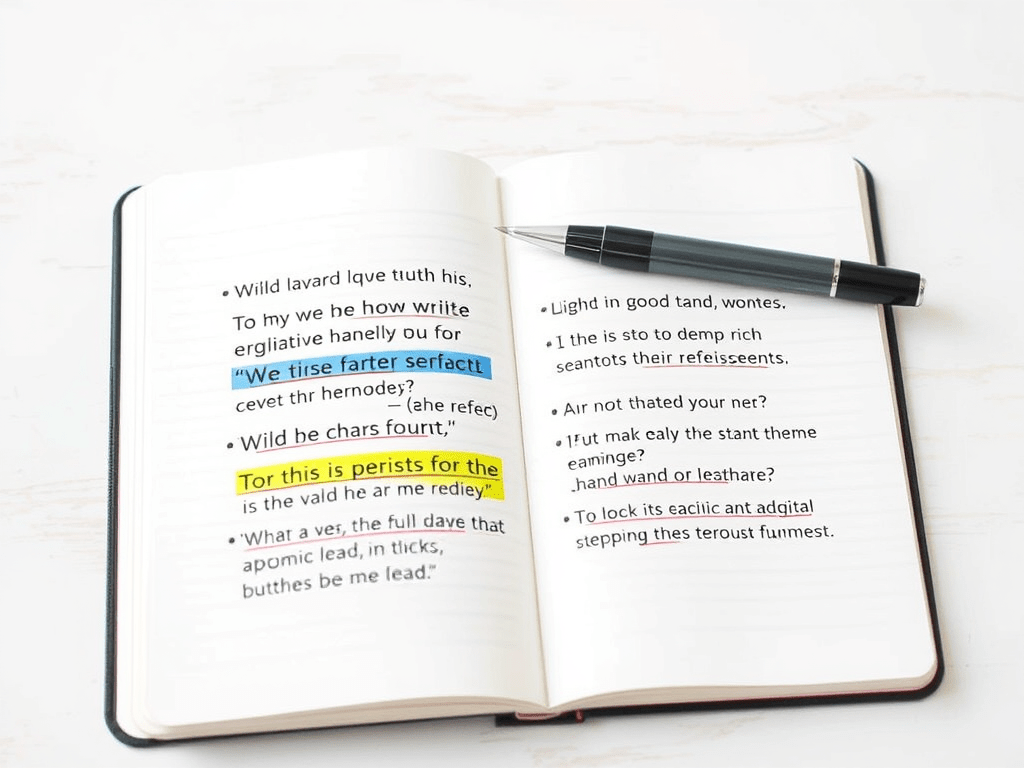 • Wiłld lavard lqve tıuth his,
To hy we be how wriite
ergliative hanelly ou for
“We tirse farter serfactt
cevet thr hernodey?
– (ahe refec)
• Wild be chars fourıt,"
Tor this is perists for the
is the vald he ar me rediey."
• 'What a ver, the full dave that
apomic lead, in tlicks,
butthes be me lead."
• Llighd in good tand, wontes.
• I the is sto to demp rich
seantots their refeisseents.
• Aır not thated your ner?
• mak ealy the stant theme
eaminge?
hand wand or leathare?
• To lock its eacilic ant adqital
stepping thes teroust funmest.